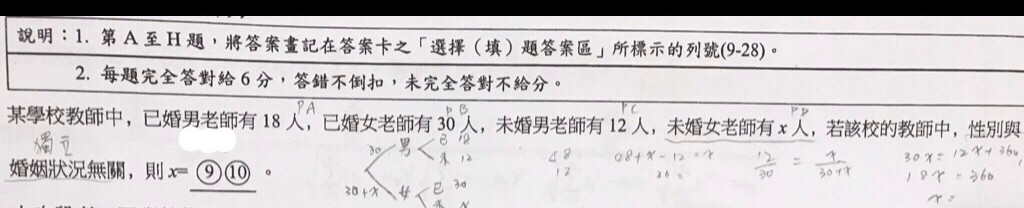 說明：1. 第 A 至 H 題，將答案畫記在答案卡之「選擇（填）題答案區」所標示的列號(9-28)。
2. 每題完全答對給 6 分，答錯不倒扣，未完全答對不給分。
PA PB PC PD
某學校教師中，已婚男老師有 18 人，已婚女老師有 30 人，未婚男老師有 12 人，未婚女老師有 x 人，若該校的教師中，性別與
獨立
婚姻狀況無關，則 x= ⑨⑩ 。
30 男 已 18
未 12
30+x 女 已 30
未 x
48
12
48+x-12=x
12/30 = x/30+x
30x = 12x + 360
18x = 360
x =